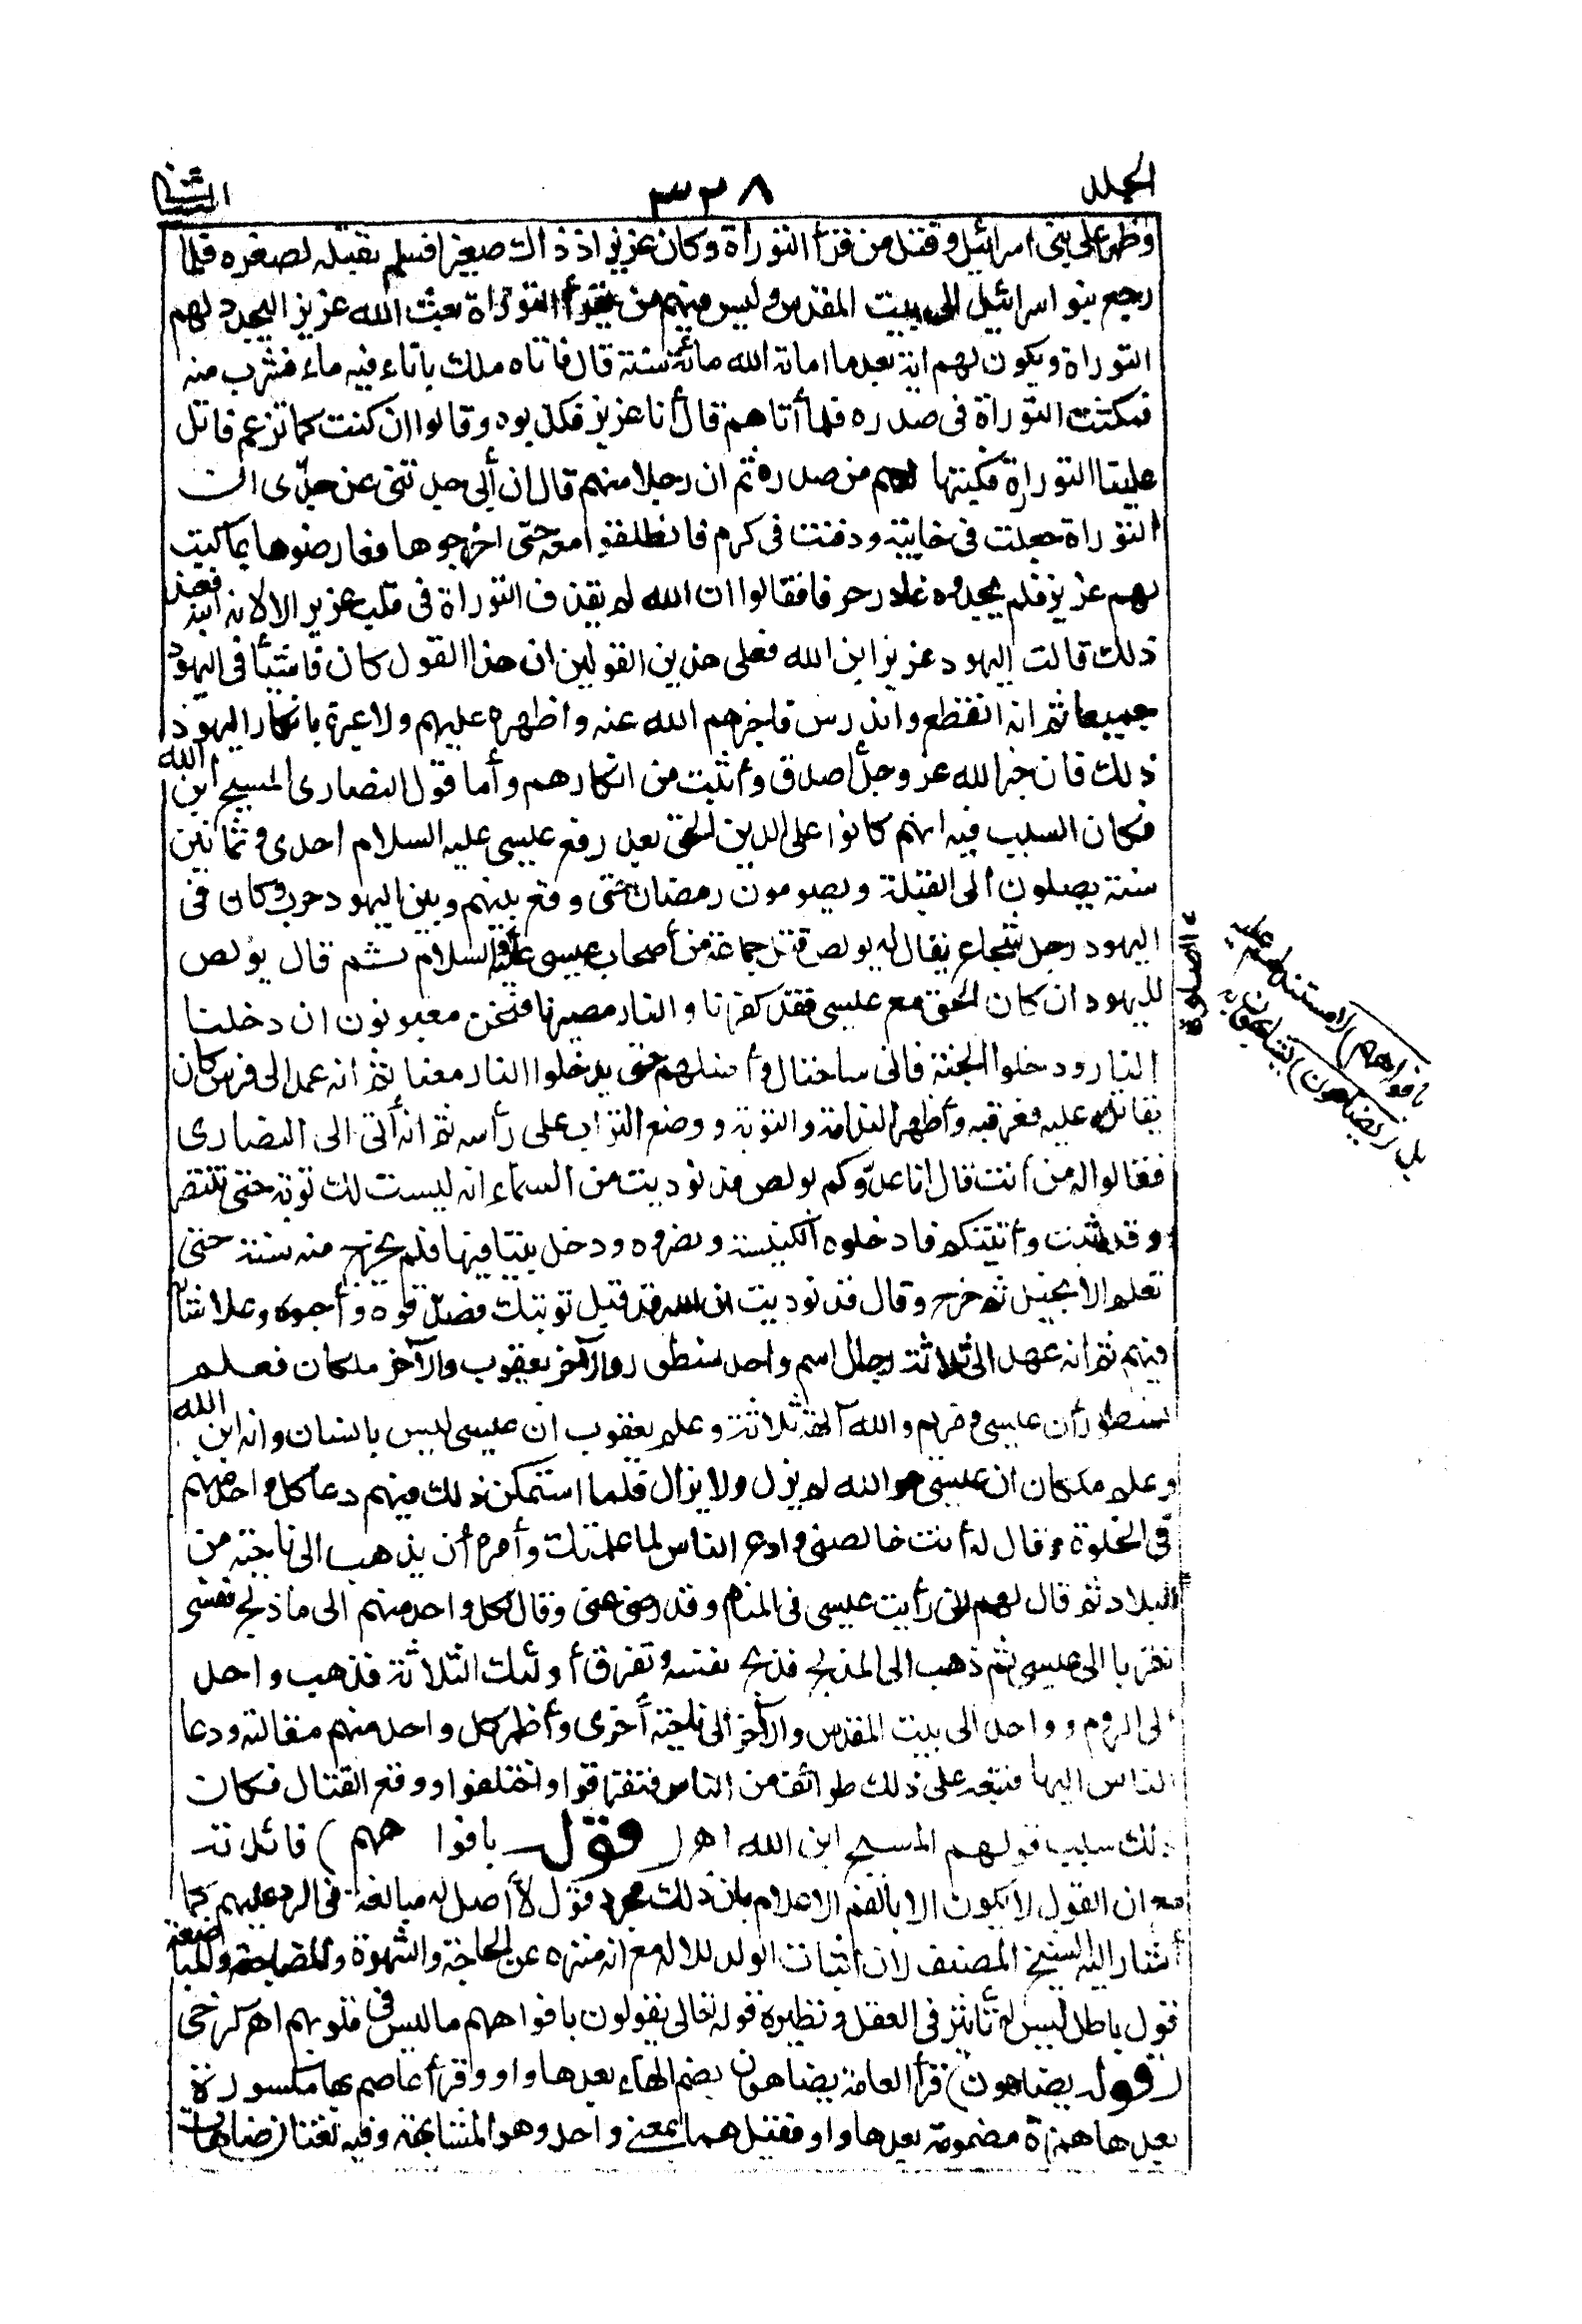 الجلد
٣٢٨
الثانى
وظهر على بنى اسرائيل وقتل من قرأ التوراة وكان عزيز اذ ذاك صغيرا فسلم بقتله لصغره فلما
رجع بنو اسرائيل الى بيت المقدس وليس منهم من يقرأ التوراة بعث الله عزيرا ليجدد لهم
التوراة ويكون لهم اية بعد ما اماته الله مائة سنة قال فاتاه ملك باناء فيه ماء فشرب منه
فمكثت التوراة فى صدره فلما أتاهم قال أنا عزيز فكذبوه وقالوا ان كنت كما تزعم فاتل
علينا التوراة فكتبها لهم من صدره ثم ان رجلا منهم قال ان أبى حدثنى عن جدّى ان
التوراة جعلت فى خابية ودفنت فى كرم فانطلقوا معه حتى اخرجوها فعارضوها بما كتب
لهم عزيز فلم يجدوه غادر حرفا فقالوا ان الله لم يقذف التوراة فى قلب عزير الا لانه ابنه فعند
ذلك قالت اليهود عزيز ابن الله فعلى هذين القولين ان هذا القول كان فاشيا فى اليهود
جميعا ثم انه انقطع واندرس فاخبرهم الله عنه واظهره عليهم ولا عبرة بانكار اليهود
ذلك فان خبر الله عز وجل أصدق وأثبت من انكارهم وأما قول النصارى المسيح ابن الله
فكان السبب فيه انهم كانوا على الدين الحق بعد رفع عيسى عليه السلام احدى وثمانين
سنة يصلون الى القبلة ويصومون رمضان حتى وقع بينهم وبين اليهود حرب وكان فى
اليهود رجل شجاع يقال له بولص قتل جماعة من أصحاب عيسى عليه السلام ثم قال بولص
لليهود ان كان الحق مع عيسى فقد كفرنا والنار مصيرنا فنحن مغبونون ان دخلنا
النار ودخلوا الجنة فانى ساحتال وأضلهم حتى يدخلوا النار معنا ثم انه عمد الى فرس كان
يقاتل عليه فعرقبه وأظهر الندامة والتوبة ووضع التراب على رأسه ثم انه أتى الى النصارى
فقالوا له من أنت قال انا عدوّكم بولص قد نوديت من السماء انه ليست لك توبة حتى تتنصر
وقد تبت وأتيتكم فادخلوه الكنيسة ونصروه ودخل بيتا فيها فلم يخرج منه سنة حتى
تعلم الانجيل ثم خرج وقال قد نوديت ان الله قد قبل توبتك فصدقوه وأحبوه وعلا شأنه
فيهم ثم انه عهد الى ثلاثة رجال اسم واحد نسطور والآخر يعقوب والآخر ملكان فعلم
نسطور أن عيسى ومريم والله آلهة ثلاثة وعلم يعقوب ان عيسى ليس بانسان وانه ابن الله
وعلم ملكان ان عيسى هو الله لم يزل ولا يزال فلما استمكن ذلك فيهم دعا كل واحد منهم
فى الخلوة وقال له أنت خالصتى وادع الناس لما علمتك وأمره أن يذهب الى ناحية من
البلاد ثم قال لهم انى رأيت عيسى فى المنام وقد رضى عنى وقال لكل واحد منهم انى ماذبح نفسى
تقربا الى عيسى ثم ذهب الى المذبح فذبح نفسه وتفرق أولئك الثلاثة فذهب واحد
الى الروم وواحد الى بيت المقدس والآخر الى ناحية أخرى وأظهر كل واحد منهم مقالته ودعا
الناس اليها فتبعه على ذلك طوائف من الناس فتفرقوا واختلفوا ووقع القتال فكان
ذلك سبب قولهم المسيح ابن الله اهـ (قوله بافواههم) فائدته
مع ان القول لا يكون الا بالفم الاعلام بان ذلك مجرد قول لا أصل له مبالغة فى الرد عليهم كما
أشار اليه الشيخ المصنف لان اثبات الولد للاله مع انه منزه عن الحاجة والشهوة والمضاجعة والمباضعة
قول باطل ليس له تأثير فى العقل ونظيره قوله تعالى يقولون بافواههم ما ليس فى قلوبهم اهـ كرخى
(قوله يضاهون) قرأ العامة يضاهون بضم الهاء بعدها واو وقرأ عاصم بهاء مكسورة
بعدها همزة مضمومة بعدها واو فقيل هما بمعنى واحد وهو المشابهة وفيه لغتان ضاهات
ه الصلاة
بافواههم) لا مستند لهم عليه
بل (يضاهون) يشابهون به